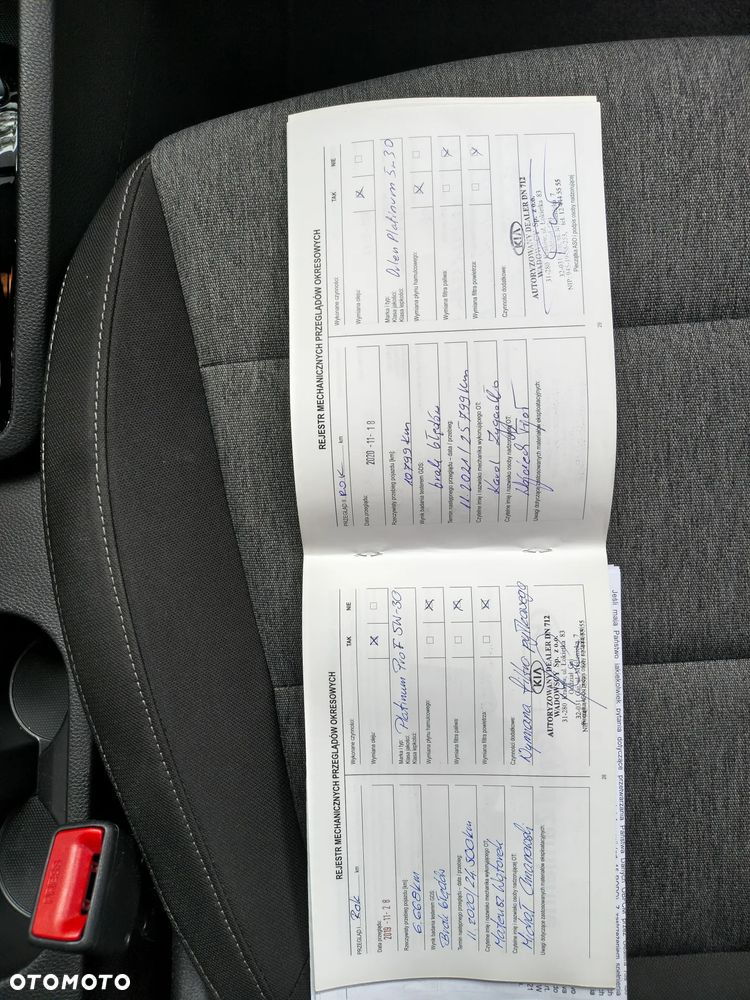 REJESTR MECHANICZNYCH PRZEGLĄDÓW OKRESOWYCH
PRZEGLĄD I Rok km
Data przeglądu:
2019 -11- 28
Rzeczywisty przebieg pojazdu [km]:
6.668km
Wynik badania testerem GDS:
Brak błędów
Termin następnego przeglądu – data / przebieg:
11.2020/24.500km
Czytelne imię i nazwisko mechanika wykonującego OT:
Mateusz Wątorek
Czytelne imię i nazwisko osoby nadzorującej OT:
Uwagi dotyczące zastosowanych materiałów eksploatacyjnych:
Wykonane czynności: TAK NIE
Wymiana oleju: X
Marka i typ:
Klasa jakości:
Klasa lepkości:
Platinum ProF 5W-30
Wymiana płynu hamulcowego: X
Wymiana filtra paliwa: X
Wymiana filtra powietrza: X
Czynności dodatkowe:
Wymiana filtra pyłkowego
KIA
AUTORYZOWANY DEALER DN 712
WADOWSCY Sp. z o.o.
31-280 Kraków, ul. Łokietka 83
28
REJESTR MECHANICZNYCH PRZEGLĄDÓW OKRESOWYCH
PRZEGLĄD II ROK km
Data przeglądu:
2020 -11- 18
Rzeczywisty przebieg pojazdu [km]:
10799km
Wynik badania testerem GDS:
brak błędów
Termin następnego przeglądu – data / przebieg:
11.2021/25799km
Czytelne imię i nazwisko mechanika wykonującego OT:
Karol
Czytelne imię i nazwisko osoby nadzorującej OT:
Wojciech
Uwagi dotyczące zastosowanych materiałów eksploatacyjnych:
Wykonane czynności: TAK NIE
Wymiana oleju: X
Marka i typ:
Klasa jakości:
Klasa lepkości:
Orlen Platinum 5-30
Wymiana płynu hamulcowego: X
Wymiana filtra paliwa: X
Wymiana filtra powietrza: X
Czynności dodatkowe:
KIA
AUTORYZOWANY DEALER DN 712
WADOWSCY Sp. z o.o.
31-280 ul. Łokietka 83
Pieczątka ASO i podpis osoby nadzorującej
29
Jeśli mają Państwo jakiekolwiek pytania dotyczące przetwarzania Państwa danych
PRESS
OTOMOTO